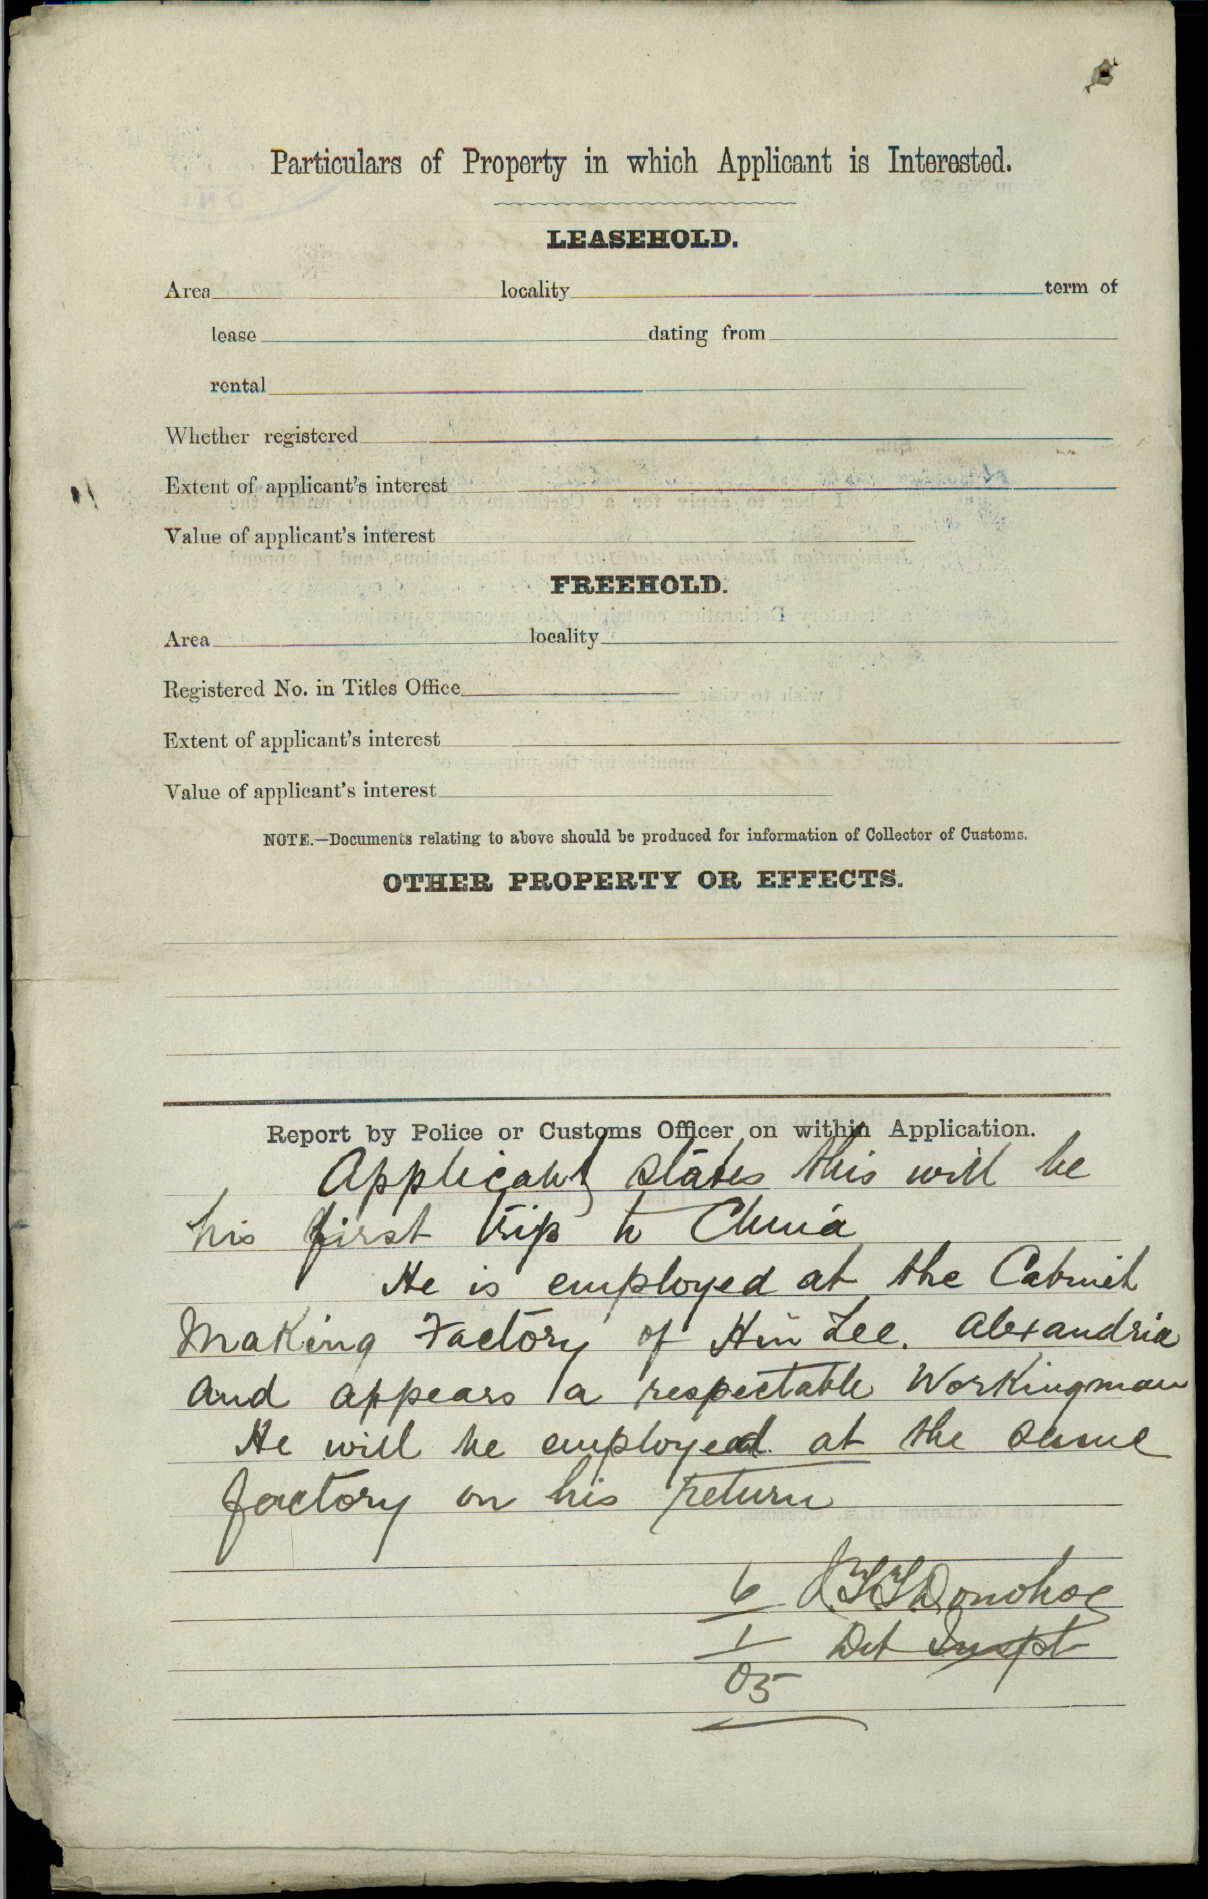 Particulars of Property in which Applicant is Interested.
LEASEHOLD.
Area locality term of
lease dating from
rental
Whether registered
Extent of applicant's interest
Value of applicant's interest
FREEHOLD.
Area locality
Registered No. in Titles Office
Extent of applicant's interest
Value of applicant's interest
NOTE.—Documents relating to above should be produced for information of Collector of Customs.
OTHER PROPERTY OR EFFECTS.
Report by Police or Customs Officer on within Application.
Applicant states this will be
his first trip to China
He is employed at the Cabinet
Making Factory of Hin Lee. Alexandria
and appears a respectable Workingman
He will be employed at the same
factory on his return
6 Donohoe
1 Det Inspt
05